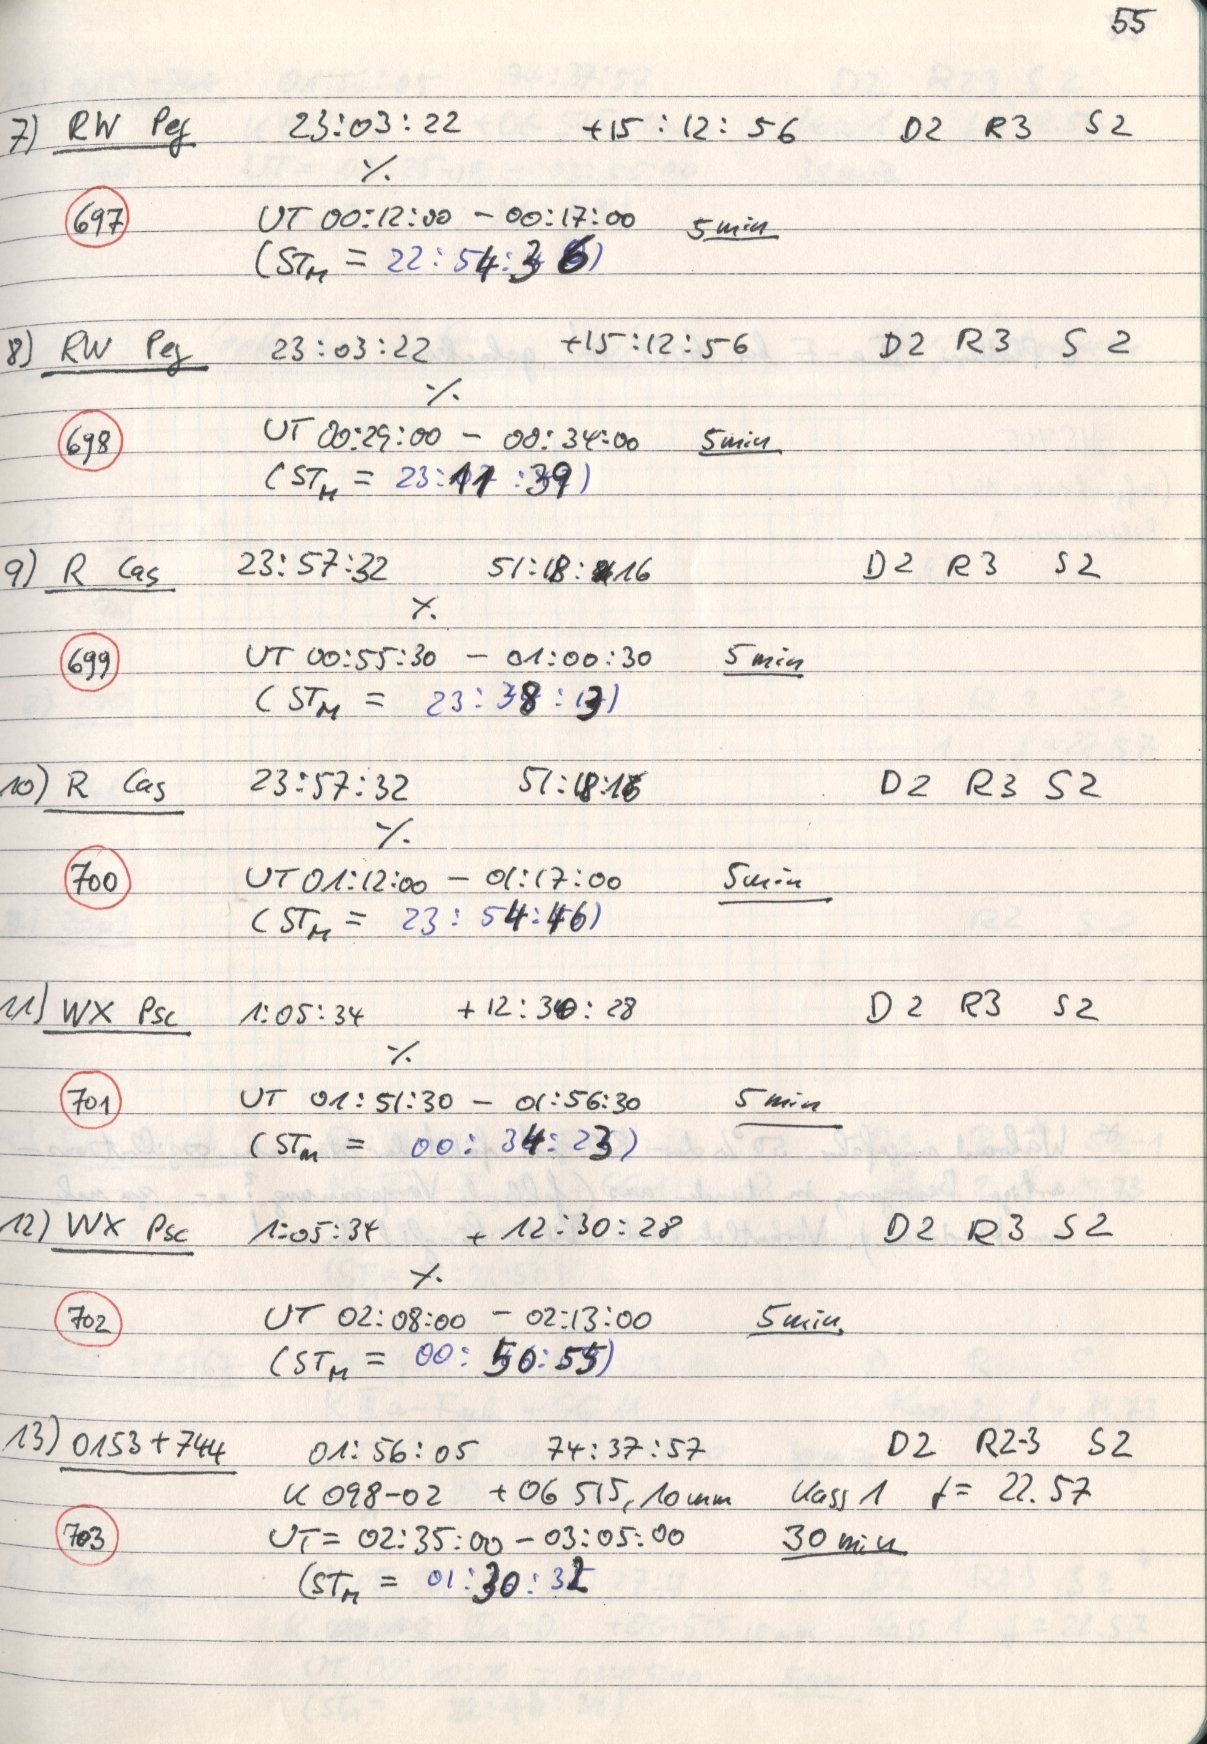 55
7) RW Peg 23:03:22 +15:12:56 D2 R3 S2
⁒
697 UT 00:12:00 - 00:17:00 5min
(STM = 22:54:36)
8) RW Peg 23:03:22 +15:12:56 D2 R3 S2
⁒
698 UT 00:29:00 - 00:34:00 5min
(STM = 23:11:39)
9) R Cas 23:57:32 51:18:16 D2 R3 S2
⁒
699 UT 00:55:30 - 01:00:30 5min
(STM = 23:38:13)
10) R Cas 23:57:32 51:18:16 D2 R3 S2
⁒
700 UT 01:12:00 - 01:17:00 5min
(STM = 23:54:46)
11) WX Psc 1:05:34 +12:30:28 D2 R3 S2
⁒
701 UT 01:51:30 - 01:56:30 5min
(STM = 00:34:23)
12) WX Psc 1:05:34 +12:30:28 D2 R3 S2
⁒
702 UT 02:08:00 - 02:13:00 5min
(STM = 00:50:55)
13) 0153+744 01:56:05 74:37:57 D2 R2-3 S2
K 098-02 +06 515, 10mm Kass 1 f = 22.57
703 UT = 02:35:00 - 03:05:00 30min
(STM = 01:30:32